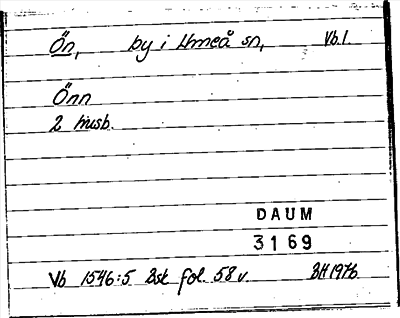 Ön, by i Umeå sn, Vb.l.
Önn
2 husb.
DAUM
3169
Vb 1546:5 Bsk fol. 58v. BH 1976